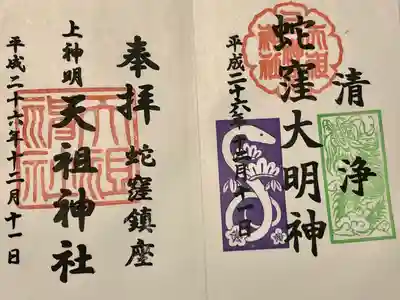 清浄
蛇窪大明神
平成二十六年十二月十一日
奉拝
蛇窪鎮座
上神明
天祖神社
平成二十六年十二月十一日
天祖神社